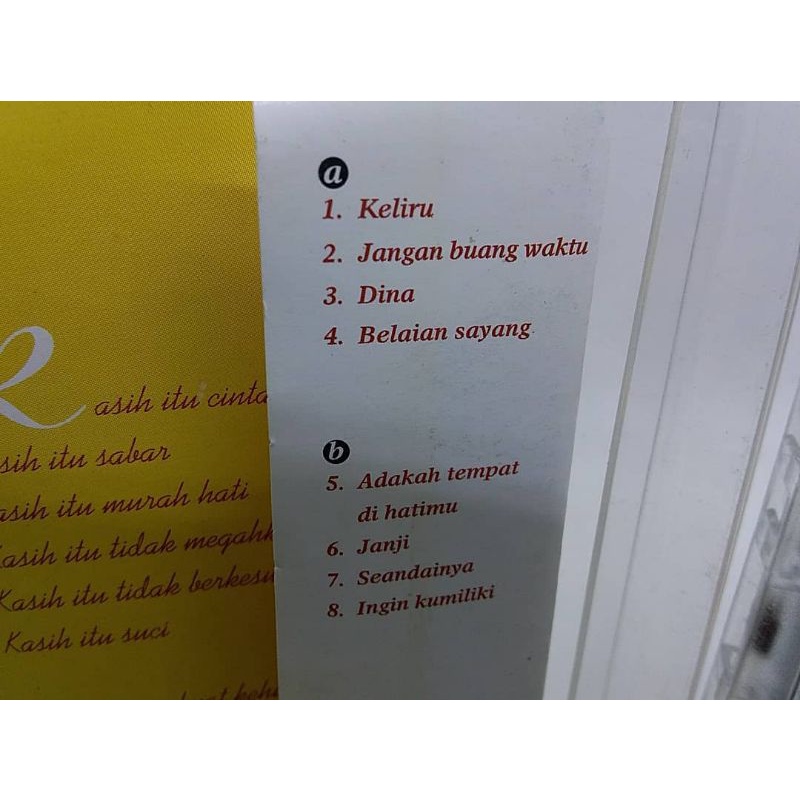 asih itu cinta
sih itu sabar
asih itu murah hati
asih itu tidak
Kasih itu tidak
Kasih itu suci
a
1. Keliru
2. Jangan buang waktu
3. Dina
4. Belaian sayang
b
5. Adakah tempat
di hatimu
6. Janji
7. Seandainya
8. Ingin kumiliki